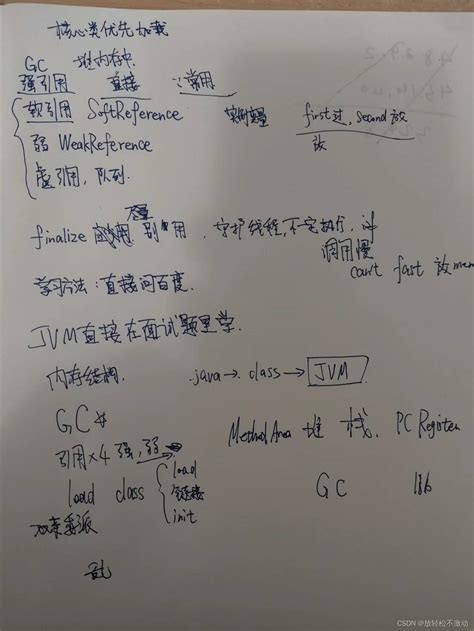 核心类优先加载
GC 堆内存中
强引用 直接 常用
软引用 SoftReference 实例变量 first过, second放
弱 WeakReference 放
虚引用, 队列.
尽量
finalize 别用. 守护线程, 不一定执行,
调用慢
can't fast 放mem
学习方法: 直接问百度.
JVM直接在面试题里学.
内存结构. .java → class → JVM
GC
Method Area 堆 栈. PC Register
引用×4 强, 弱
load class load
链接
init
GC lib
双亲委派
乱
CSDN @放轻松不激动